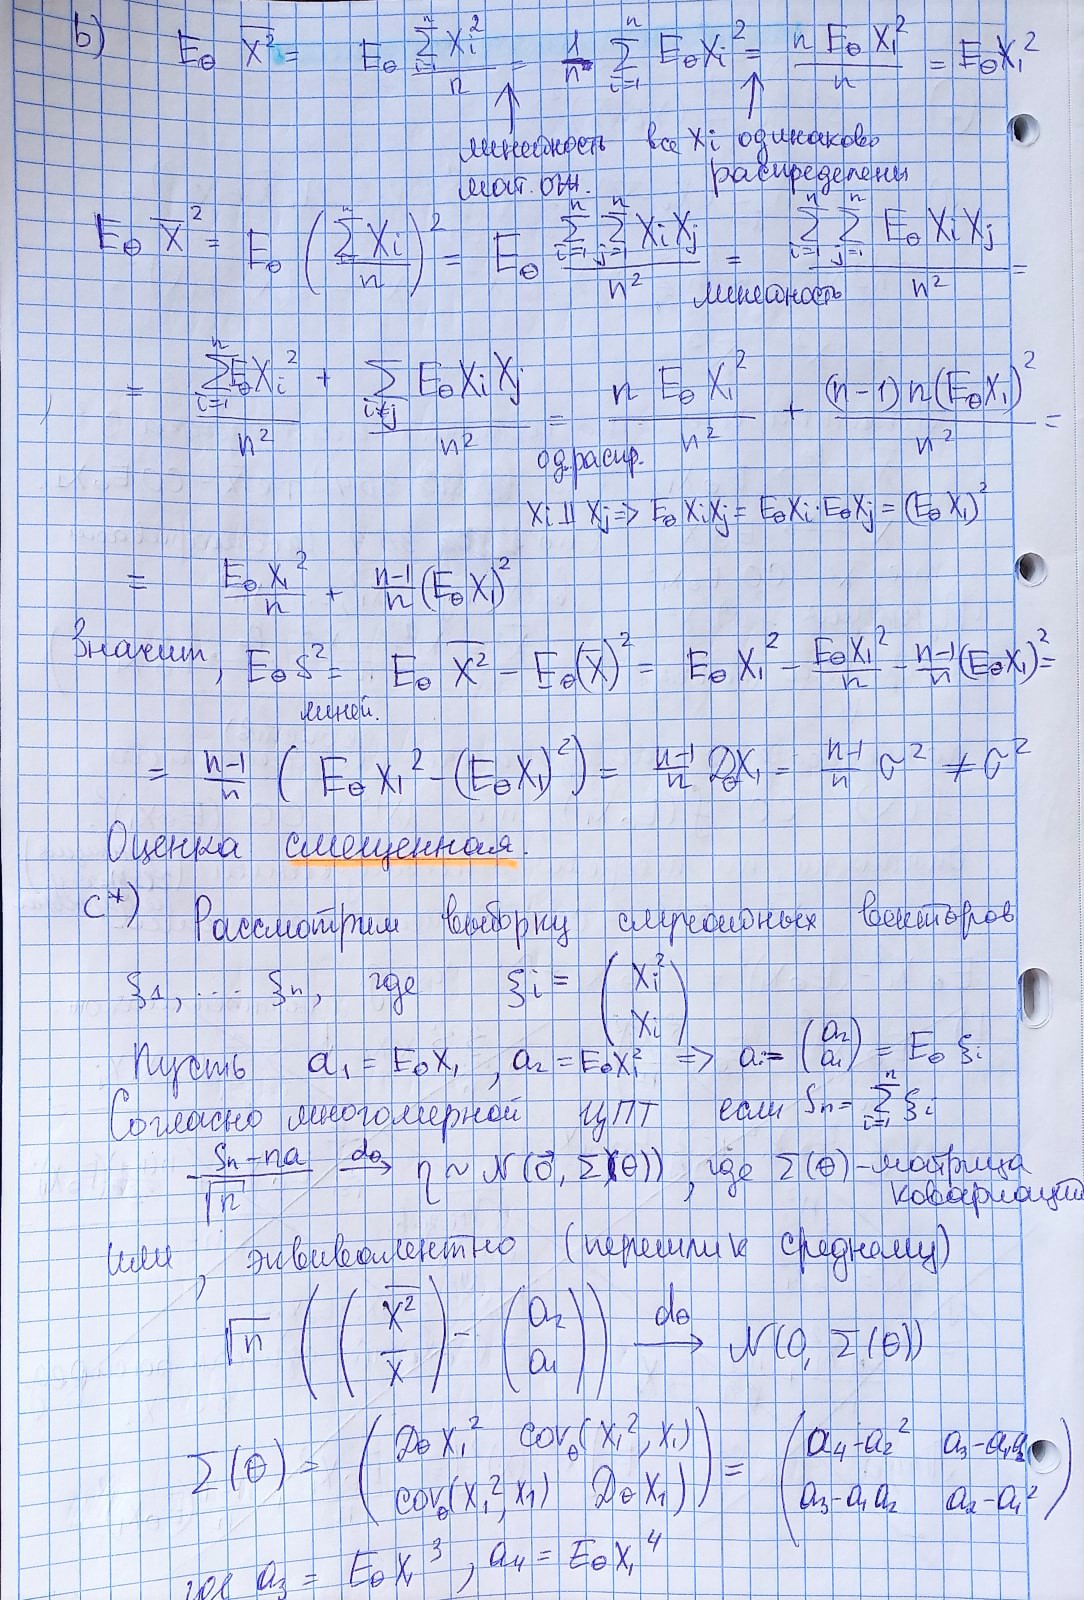 b) E_θ \overline{X^2} = E_θ \frac{\sum_{i=1}^{n} X_i^2}{n} = \frac{1}{n} \sum_{i=1}^{n} E_θ X_i^2 = \frac{n E_θ X_1^2}{n} = E_θ X_1^2
линейность все X_i одинаково
мат. ож. распределены
E_θ \overline{X}^2 = E_θ \left( \frac{\sum_{i=1}^{n} X_i}{n} \right)^2 = E_θ \frac{\sum_{i=1}^{n} \sum_{j=1}^{n} X_i X_j}{n^2} = \frac{\sum_{i=1}^{n} \sum_{j=1}^{n} E_θ X_i X_j}{n^2} =
линейность
= \frac{\sum_{i=1}^{n} E_θ X_i^2}{n^2} + \frac{\sum_{i≠j} E_θ X_i X_j}{n^2} = \frac{n E_θ X_1^2}{n^2} + \frac{(n-1) n (E_θ X_1)^2}{n^2} =
од. распр.
X_i ⫫ X_j => E_θ X_i X_j = E_θ X_i · E_θ X_j = (E_θ X_1)^2
= \frac{E_θ X_1^2}{n} + \frac{n-1}{n} (E_θ X_1)^2
Значит, E_θ S^2 = E_θ \overline{X^2} - E_θ (\overline{X})^2 = E_θ X_1^2 - \frac{E_θ X_1^2}{n} - \frac{n-1}{n} (E_θ X_1)^2 =
линей.
= \frac{n-1}{n} ( E_θ X_1^2 - (E_θ X_1)^2 ) = \frac{n-1}{n} D_θ X_1 = \frac{n-1}{n} σ^2 ≠ σ^2
Оценка смещенная.
c*) Рассмотрим выборку случайных векторов
ξ_1, ... ξ_n, где ξ_i = \begin{pmatrix} X_i^2 \\ X_i \end{pmatrix}
Пусть a_1 = E_θ X_1, a_2 = E_θ X_1^2 => a := \begin{pmatrix} a_2 \\ a_1 \end{pmatrix} = E_θ ξ_i
Согласно многомерной ЦПТ если S_n = \sum_{i=1}^{n} ξ_i
\frac{S_n - na}{\sqrt{n}} \xrightarrow{d_θ} η ~ N(\vec{0}, Σ(θ)), где Σ(θ) - матрица
ковариаций
или, эквивалентно (перешли к среднему)
\sqrt{n} \left( \begin{pmatrix} \overline{X^2} \\ \overline{X} \end{pmatrix} - \begin{pmatrix} a_2 \\ a_1 \end{pmatrix} \right) \xrightarrow{d_θ} N(0, Σ(θ))
Σ(θ) = \begin{pmatrix} D_θ X_1^2 & cov_θ(X_1^2, X_1) \\ cov_θ(X_1^2, X_1) & D_θ X_1 \end{pmatrix} = \begin{pmatrix} a_4 - a_2^2 & a_3 - a_1 a_2 \\ a_3 - a_1 a_2 & a_2 - a_1^2 \end{pmatrix}
где a_3 = E_θ X_1^3, a_4 = E_θ X_1^4